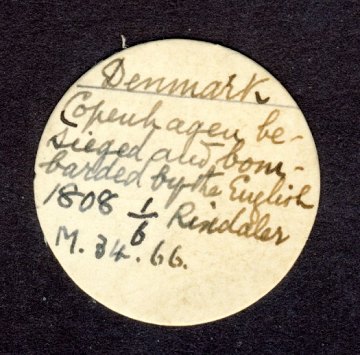 Denmark
Copenhagen be-
sieged and bom-
barded by the English
1808 1/6 Risdaler
M. 34. 66.